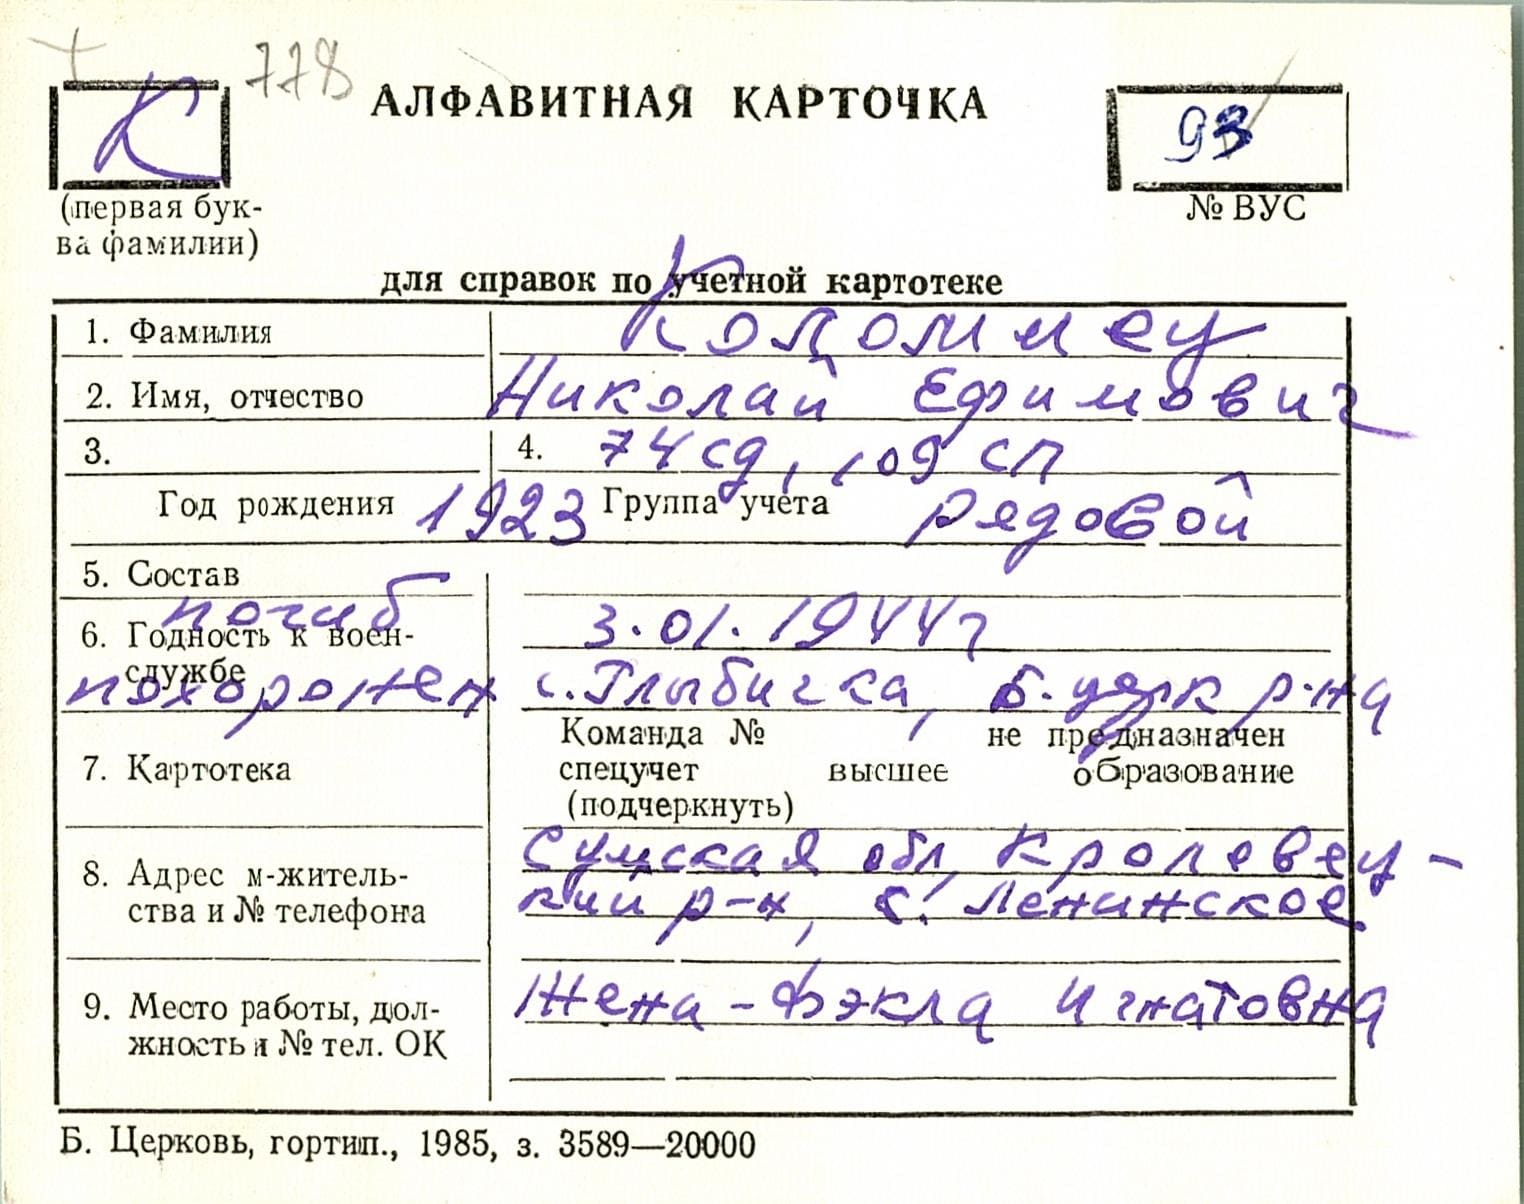 778
К
АЛФАВИТНАЯ КАРТОЧКА
93
(первая бук-
ва фамилии)
№ ВУС
для справок по учетной картотеке
1. Фамилия Коломиец
2. Имя, отчество Николай Ефимович
3. 4. 74 сд, 109 сп
Год рождения 1923 Группа учёта рядовой
5. Состав
погиб 3.01.1944г
6. Годность к воен-
службе
похоронен с. Глыбичка, Б. церк р-на
Команда № не предназначен
7. Картотека спецучет высшее образование
(подчеркнуть)
Сумская обл, Кролевец-
8. Адрес м-житель-
кий р-н, с. Ленинское
ства и № телефона
9. Место работы, дол- Жена - Фэкла Игнатовна
жность и № тел. ОК
Б. Церковь, гортип., 1985, з. 3589—20000